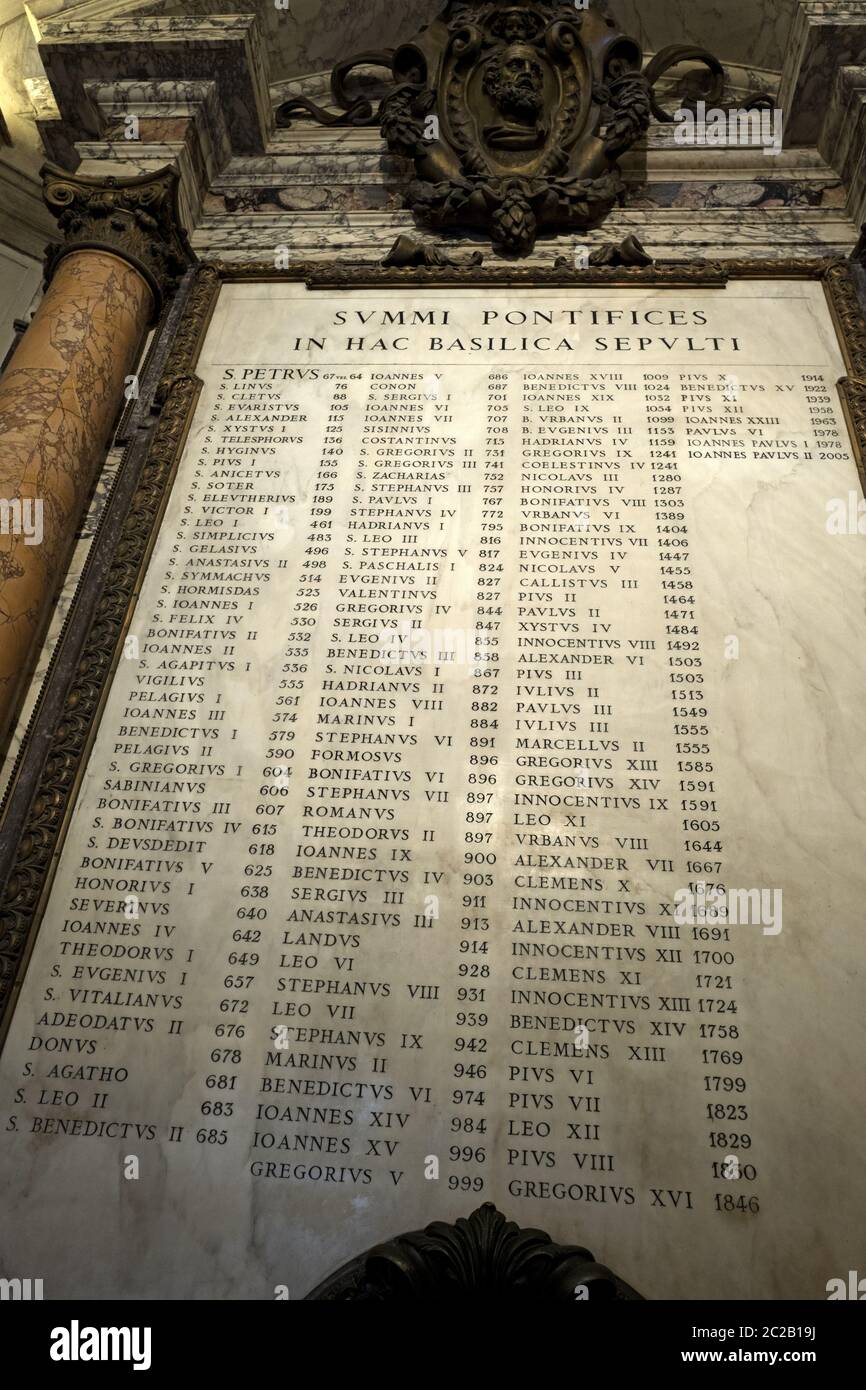 SVMMI PONTIFICES
IN HAC BASILICA SEPVLTI
S. PETRVS 67 VEL 64
S. LINVS 76
S. CLETVS 88
S. EVARISTVS 105
S. ALEXANDER 115
S. XYSTVS I 125
S. TELESPHORVS 136
S. HYGINVS 140
S. PIVS I 155
S. ANICETVS 166
S. SOTER 175
S. ELEVTHERIVS 189
S. VICTOR I 199
S. LEO I 461
S. SIMPLICIVS 483
S. GELASIVS 496
S. ANASTASIVS II 498
S. SYMMACHVS 514
S. HORMISDAS 523
S. IOANNES I 526
S. FELIX IV 530
BONIFATIVS II 532
IOANNES II 535
S. AGAPITVS I 536
VIGILIVS 555
PELAGIVS I 561
IOANNES III 574
BENEDICTVS I 579
PELAGIVS II 590
S. GREGORIVS I 604
SABINIANVS 606
BONIFATIVS III 607
S. BONIFATIVS IV 615
S. DEVSDEDIT 618
BONIFATIVS V 625
HONORIVS I 638
SEVERINVS 640
IOANNES IV 642
THEODORVS I 649
S. EVGENIVS I 657
S. VITALIANVS 672
ADEODATVS II 676
DONVS 678
S. AGATHO 681
S. LEO II 683
S. BENEDICTVS II 685
IOANNES V 686
CONON 687
S. SERGIVS I 701
IOANNES VI 705
IOANNES VII 707
SISINNIVS 708
COSTANTINVS 715
S. GREGORIVS II 731
S. GREGORIVS III 741
S. ZACHARIAS 752
S. STEPHANVS III 757
S. PAVLVS I 767
STEPHANVS IV 772
HADRIANVS I 795
S. LEO III 816
S. STEPHANVS V 817
S. PASCHALIS I 824
EVGENIVS II 827
VALENTINVS 827
GREGORIVS IV 844
SERGIVS II 847
S. LEO IV 855
BENEDICTVS III 858
S. NICOLAVS I 867
HADRIANVS II 872
IOANNES VIII 882
MARINVS I 884
STEPHANVS VI 891
FORMOSVS 896
BONIFATIVS VI 896
STEPHANVS VII 897
ROMANVS 897
THEODORVS II 897
IOANNES IX 900
BENEDICTVS IV 903
SERGIVS III 911
ANASTASIVS III 913
LANDVS 914
LEO VI 928
STEPHANVS VIII 931
LEO VII 939
STEPHANVS IX 942
MARINVS II 946
BENEDICTVS VI 974
IOANNES XIV 984
IOANNES XV 996
GREGORIVS V 999
IOANNES XVIII 1009
BENEDICTVS VIII 1024
IOANNES XIX 1032
S. LEO IX 1054
B. VRBANVS II 1099
B. EVGENIVS III 1153
HADRIANVS IV 1159
GREGORIVS IX 1241
COELESTINVS IV 1241
NICOLAVS III 1280
HONORIVS IV 1287
BONIFATIVS VIII 1303
VRBANVS VI 1389
BONIFATIVS IX 1404
INNOCENTIVS VII 1406
EVGENIVS IV 1447
NICOLAVS V 1455
CALLISTVS III 1458
PIVS II 1464
PAVLVS II 1471
XYSTVS IV 1484
INNOCENTIVS VIII 1492
ALEXANDER VI 1503
PIVS III 1503
IVLIVS II 1513
PAVLVS III 1549
IVLIVS III 1555
MARCELLVS II 1555
GREGORIVS XIII 1585
GREGORIVS XIV 1591
INNOCENTIVS IX 1591
LEO XI 1605
VRBANVS VIII 1644
ALEXANDER VII 1667
CLEMENS X 1676
INNOCENTIVS XI 1689
ALEXANDER VIII 1691
INNOCENTIVS XII 1700
CLEMENS XI 1721
INNOCENTIVS XIII 1724
BENEDICTVS XIV 1758
CLEMENS XIII 1769
PIVS VI 1799
PIVS VII 1823
LEO XII 1829
PIVS VIII 1830
GREGORIVS XVI 1846
PIVS X 1914
BENEDICTVS XV 1922
PIVS XI 1939
PIVS XII 1958
IOANNES XXIII 1963
PAVLVS VI 1978
IOANNES PAVLVS I 1978
IOANNES PAVLVS II 2005
alamy
alamy
Image ID: 2C2B19J
www.alamy.com